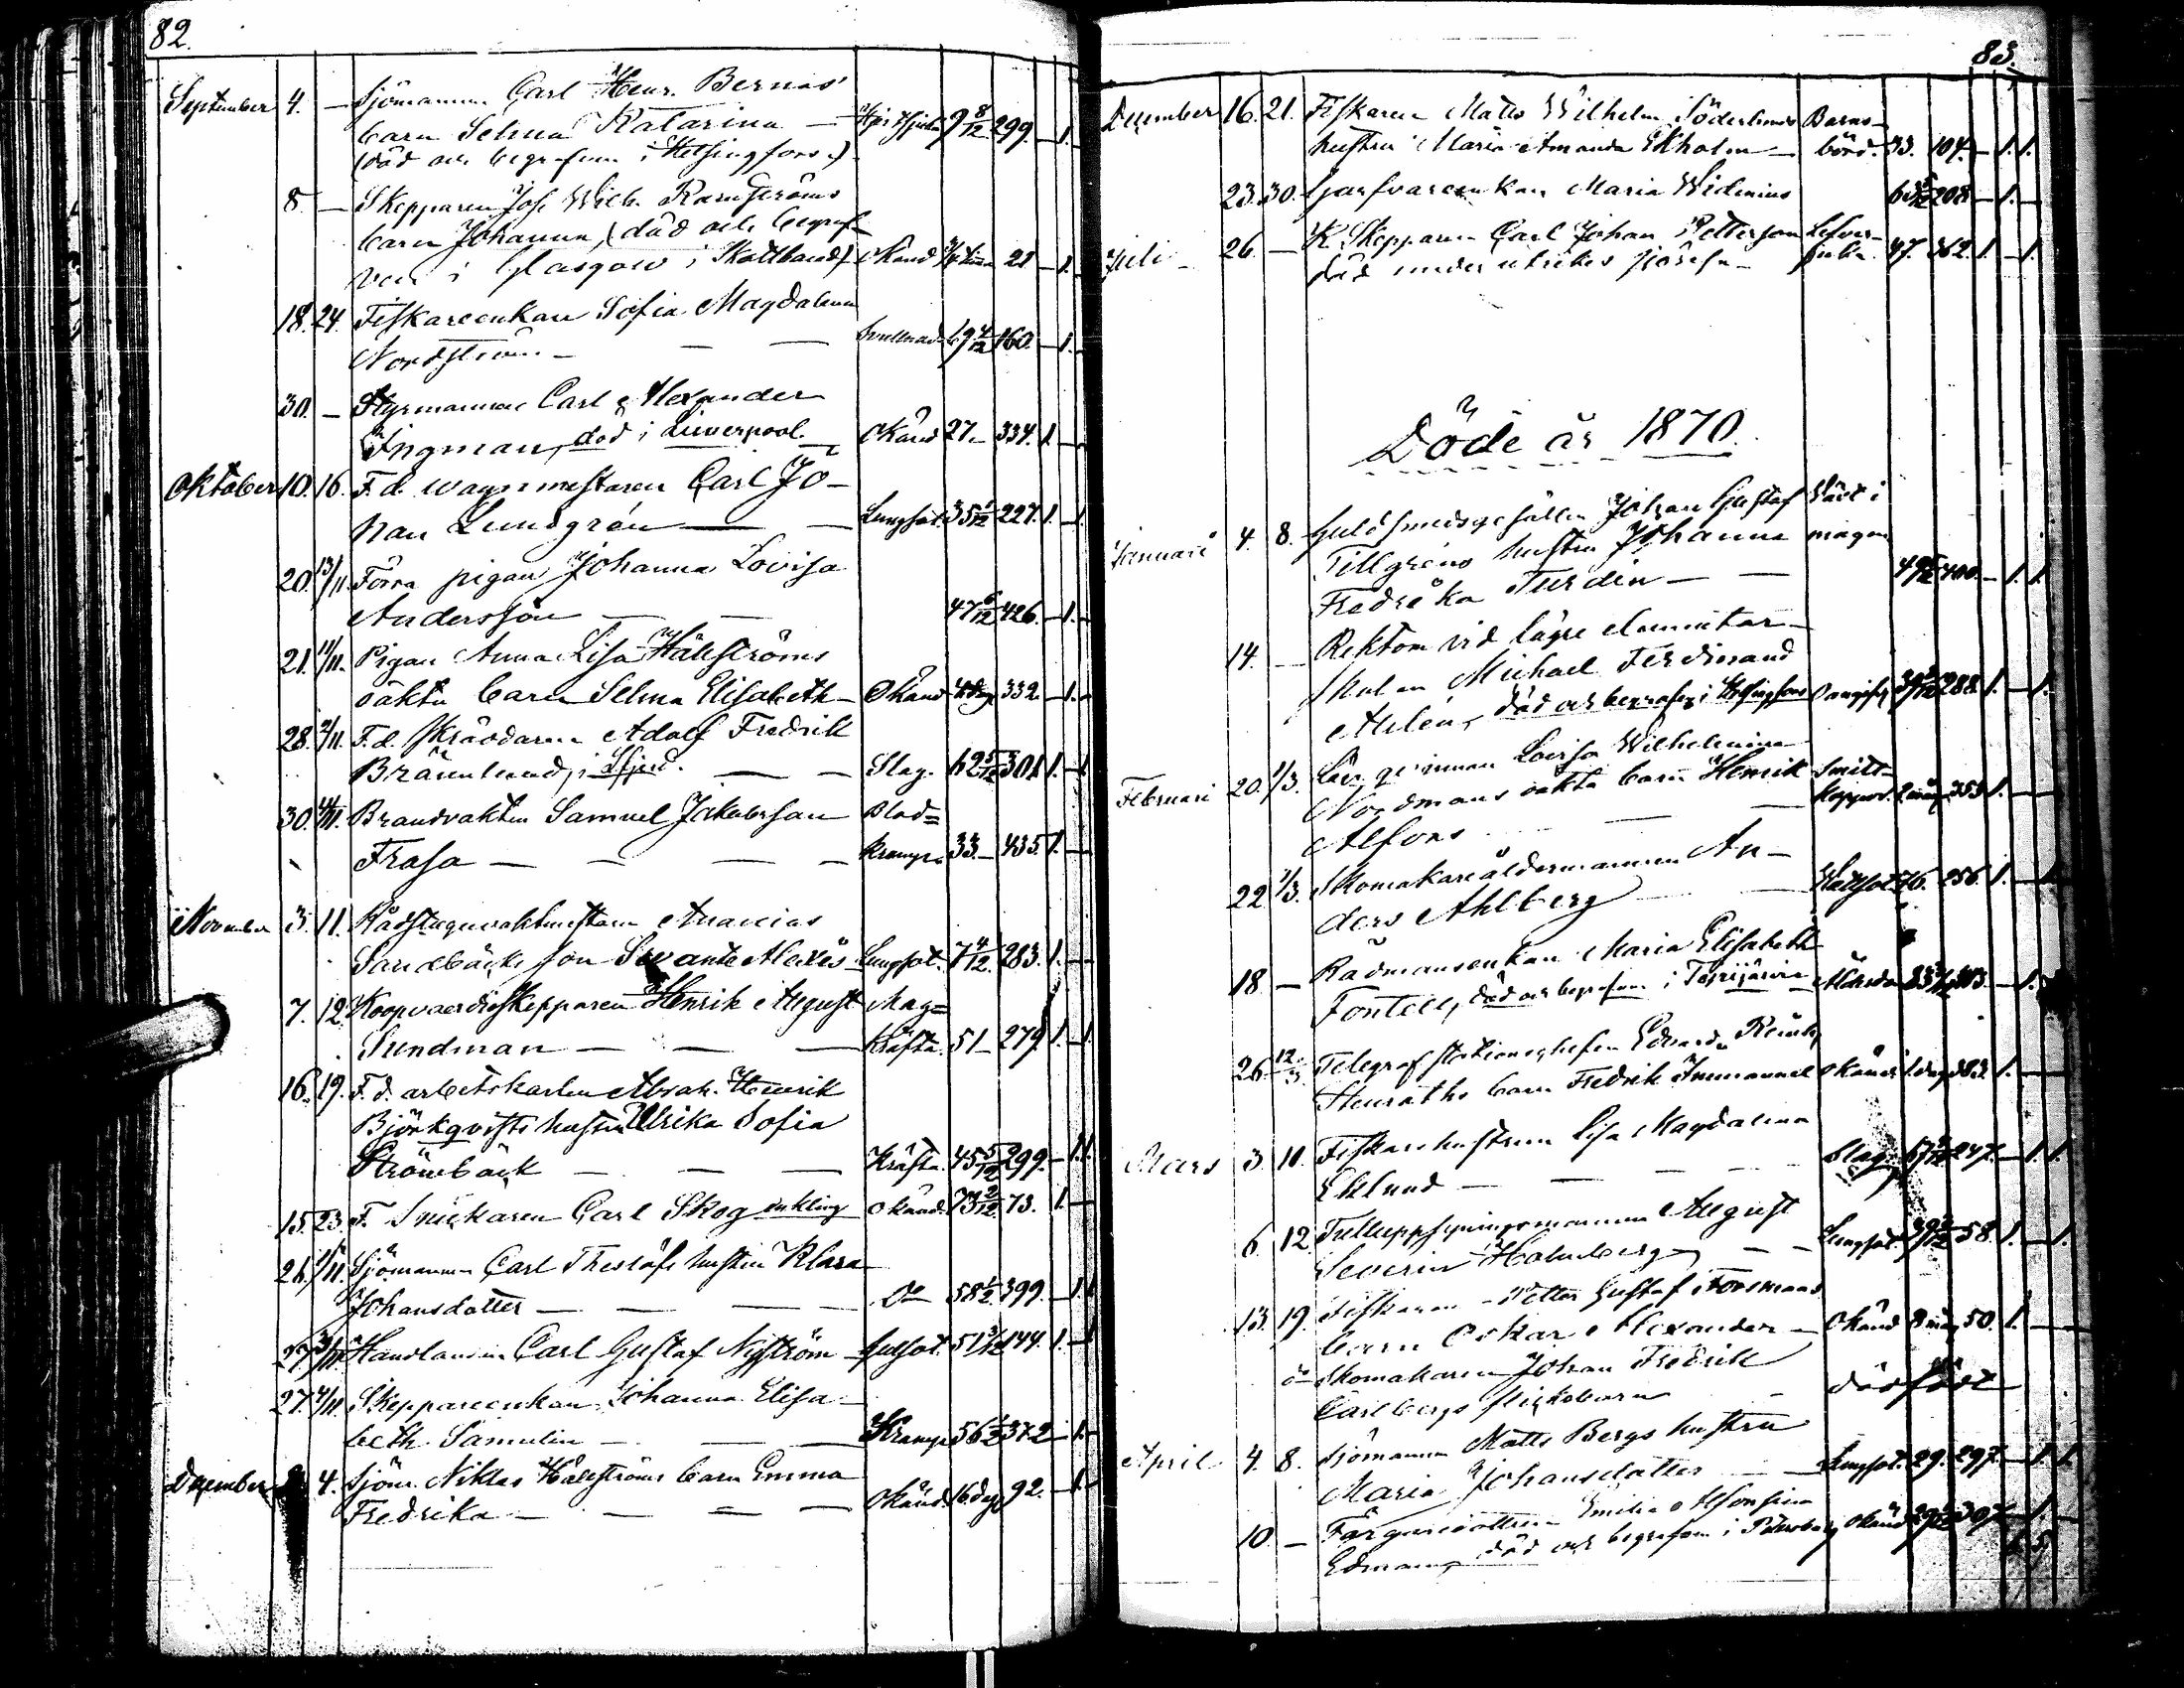 82.
September 4. — Sjömannen Carl Henr. Bernas'
barn Selma Katarina — 9 8/12 299. — 1.
(död och begrafven i Helsingfors.)
8. — Skepparen Jos. Wilh. Ramströms
barn Johanna, (död och begraf-
ven i Glasgow i Skottland) okänd 21 — 1.
18. 24. Fiskareenkan Sofia Magdalena
Nordström — — — 69 160. — 1.
30. — Styrmannen Carl Alexander
Ingman, död i Liverpool. okänd 27. — 334. 1. —
Oktober 10. 16. F. d. wagnmästaren Carl Jo-
han Lundgrén — — Lungsot. 35 227. 1. — 1.
20. 13/11 Förra pigan Johanna Lovisa
Andersson — — 47 6/12 426. — 1. —
21. 11/11. Pigan Anna Lisa Hällströms
oäkta barn Selma Elisabeth — Okänd 4 dag 332. — 1. —
28. F. d. Skräddaren Adolf Fredrik
Brännlund, — — Slag. 62 5/12 301. 1. — 1.
30. Brandvakten Samuel Jakobsson Blod=
Frasa — — — — kramp. 33. — 435. 1. —
November 3. 11. Rådstuguvaktmästaren Ananias
Sandbäcks son Svante Alexis Lungsot. 7 4/12. 283. 1. —
7. 12. Koopvaerdieskepparen Henrik August Mag=
Sundman — — — kräfta. 51 — 279. 1. — 1.
16. 19. F. d. arbetskarlen Abrah. Henrik
Björkqvists hustru Ulrika Sofia
Strömbäck — — — Kräfta. 45 5/12 299. — 1. 1.
15. 23. F. Snickaren Carl Skog enkling okänd. 73 2/12. 73. 1. —
26. Sjömannen Carl Theslöfs hustru Klara
Johansdotter — — — Do 58 399. — 1. 1.
27. Handlanden Carl Gustaf Nyström — Gulsot. 51 144. 1. — 1
27. Skeppareenkan Johanna Elisa-
beth Samulin — — — Kramp 56 372 — 1. —
December 4. Sjöm. Niklas Hällströms barn Emma
Fredrika — — — — okänd. 16 dag 92. — 1. —
83.
December 16. 21. Fiskaren Matts Wilhelm Söderlunds Barns-
hustru Maria Amanda Ekholm — börd. 33. 104. — 1. 1.
23. 30. Garfvareenkan Maria Widenius 208 — 1. —
Juli — 26. — K. Skepparen Carl Johan Petterson Lefver-
död under utrikes sjöresa — 47. 362. 1. — 1.
Döde år 1870.
Januari 4. 8. Guldsmedsgesällen Johan Gustaf
Tillgréns hustru Johanna magen
Fredrika Turdin — — 400. — 1. 1.
14. — Rektorn vid lägre elementar-
skolan Michael Ferdinand
Ahlén, död och begrafven i Helsingfors 288. 1. — 1.
Februari 20. 1/3. Lovisa Wilhelmina
Nordmans oäkta barn Henrik Smitt-
Alfons — koppor. 2 mån. 353. 1. —
22 1/3. Skomakareåldermannen An-
ders Ahlberg — 76. 256. 1. —
18 — Rådmansenkan Maria Elisabeth
Fontell, död och begrafven i Terijärvi — 1.
26. 12/3. Telegrafstationschefen Edvard
Stenroths barn Fredrik Immanuel okänd 1 dag 1. —
Mars 3. 10. Fiskarehustrun Lisa Magdalena
Eklund — — — — Slag. 247. — 1. 1.
6. 12. Tulluppsyningsmannen August
Severin Holmberg — — Lungsot. 58. 1. — 1.
13. 19. Fiskaren Petter Gustaf Forsmans
barn Oskar Alexander — Okänd 8 mån 50. 1. —
Skomakaren Johan Fredrik
Carlbergs flickebarn — dödfödt
April 4. 8. Sjömannen Matts Bergs hustru
Maria Johansdotter — Lungsot. 29. 297. — 1. 1.
10. — Färgaredottren Emilia Alfonsina
Edman, död och begrafven i Petersburg okänd 307. — 1. —